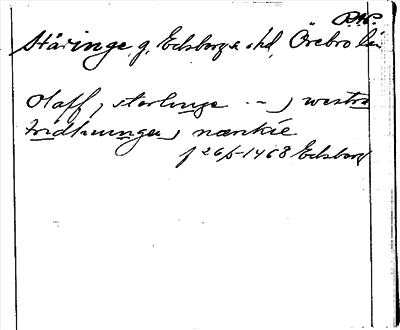 Ståringe, g, Edsbergs hd, Örebro län
Olaff, starlinge -- , westra
tridhiunge, nærikie
f 26/5 1468 Edsberg